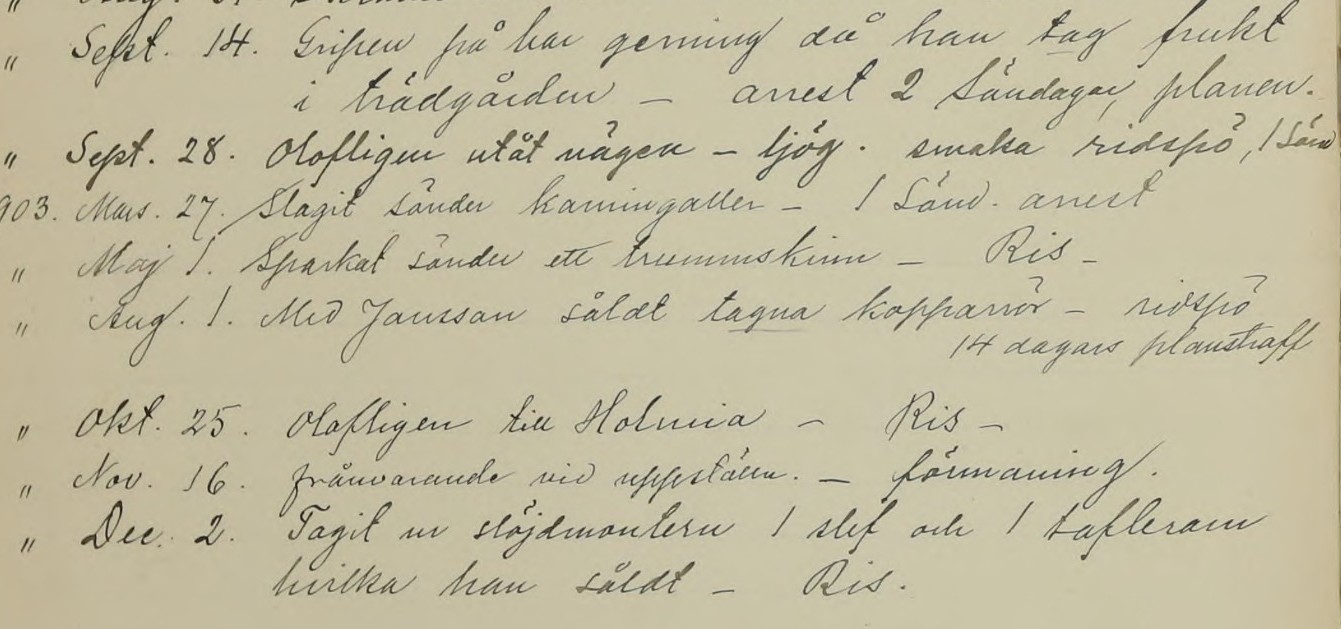 " Sept. 14. Gripen på bar gerning då han tog frukt
i trädgården — arrest 2 Söndagar, planen.
" Sept. 28. Olofligen utåt vägen — ljög. smaka ridspö, 1 Sönd
903. Mars. 27. Slagit sönder kamingaller — 1 Sönd. arrest
" Maj 1. Sparkat sönder ett trummskinn — Ris —
" Aug. 1. Med Jansson såldt tagna kopparrör — ridspö
14 dagars planstraff
" Okt. 25. Olofligen till Holmia — Ris —
" Nov. 16. frånvarande vid uppställn. — förmaning.
" Dec. 2. Tagit ur slöjdmontern 1 slef och 1 tafleram
hvilka han såldt — Ris.